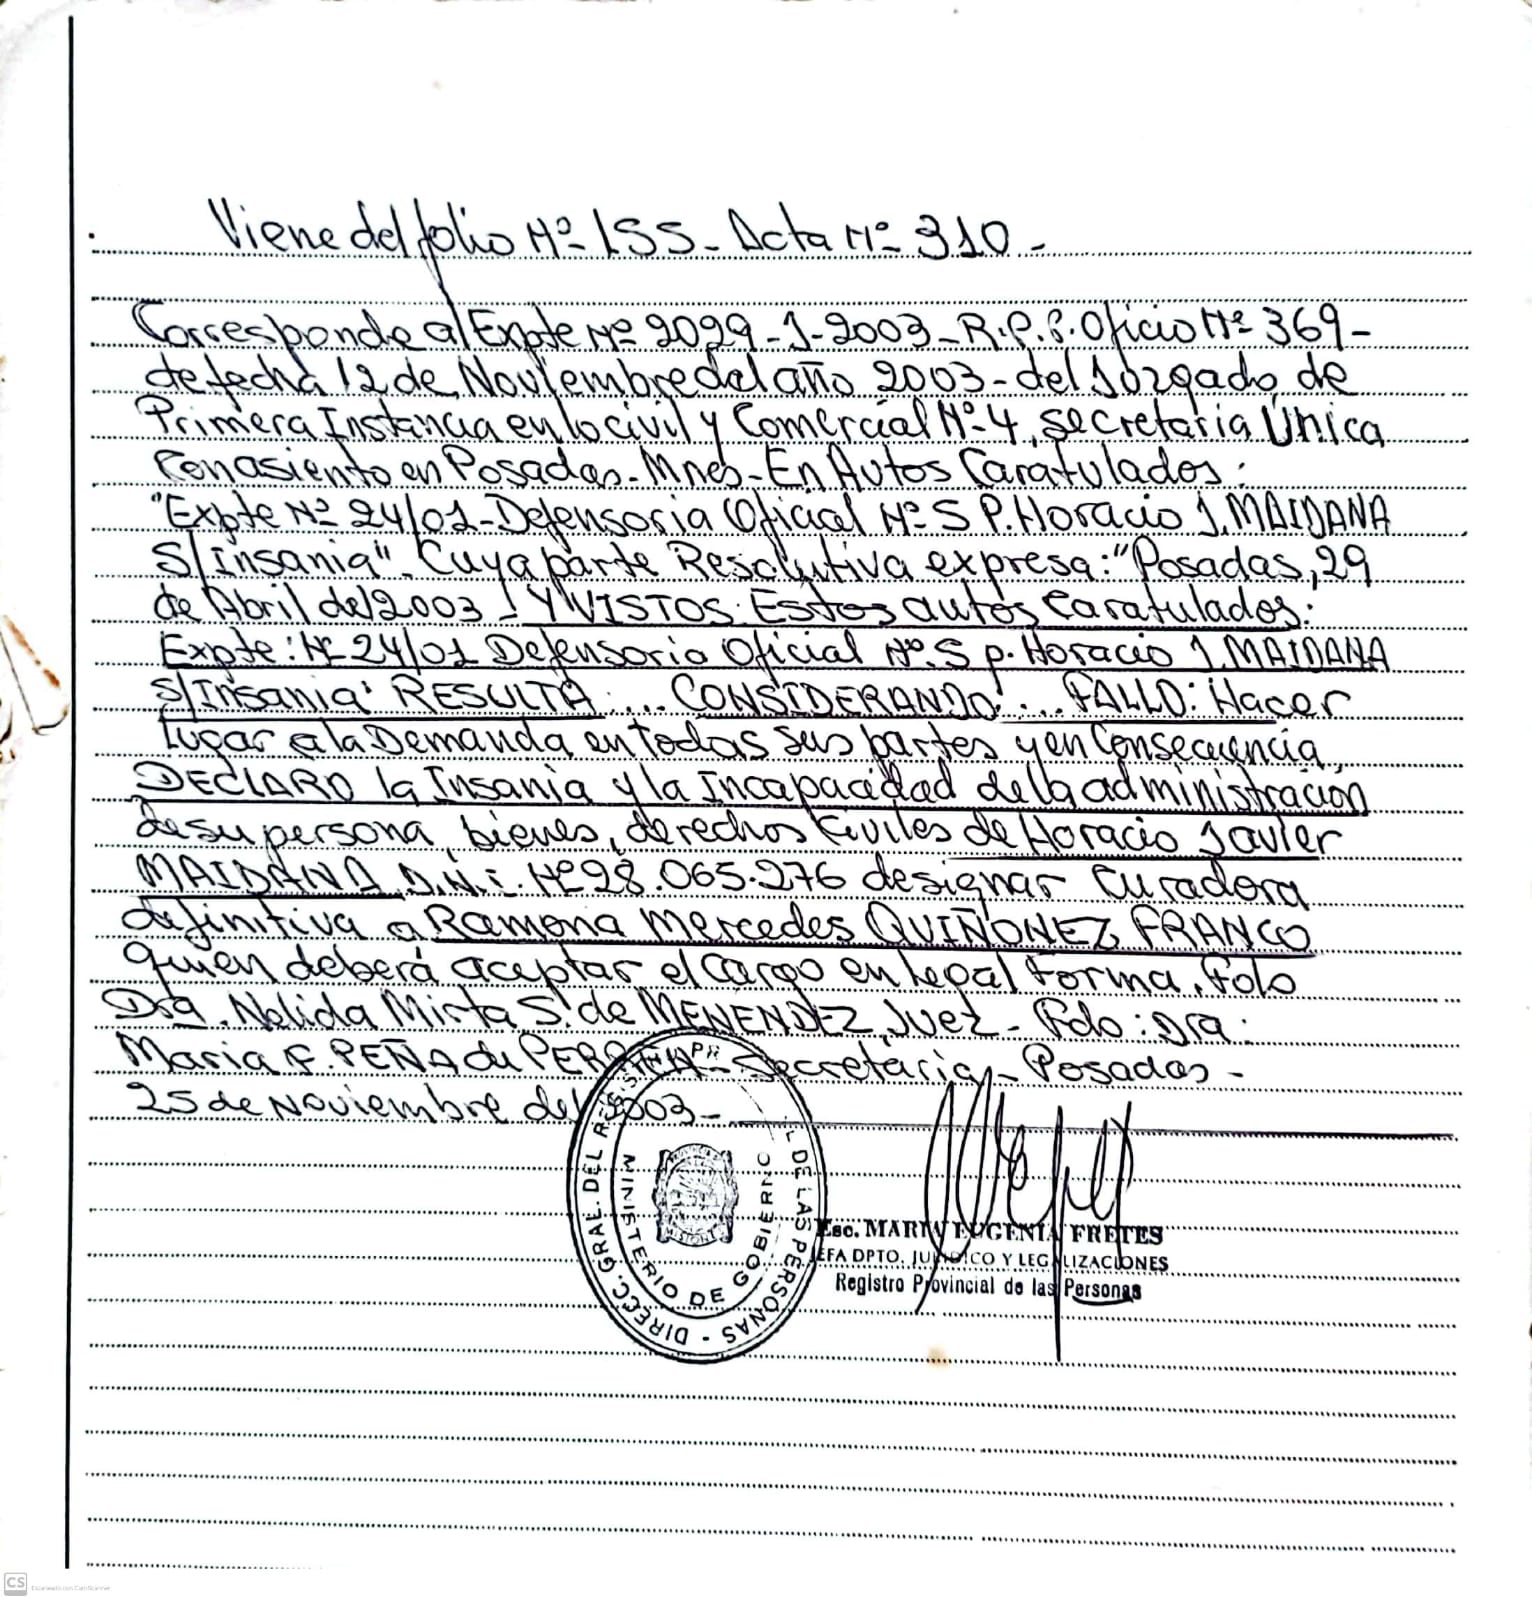 Viene del folio Nº 155 - Acta Nº 310 -
Corresponde al Expte Nº 2029-1-2003 - R.P.P. Oficio Nº 369 -
de fecha 12 de Noviembre del año 2003 - del Juzgado de
Primera Instancia en lo civil y Comercial Nº 4, secretaria Única
Con asiento en Posadas - Mnes - En Autos Caratulados:
"Expte Nº 24/01 - Defensoria Oficial Nº 5 P. Horacio J. MAIDANA
S/Insania". Cuya parte Resolutiva expresa: "Posadas, 29
de Abril del 2003 - Y VISTOS: Estos autos Caratulados:
Expte: Nº 24/01 Defensoria Oficial Nº. 5 p. Horacio J. MAIDANA
S/Insania" RESULTA .... CONSIDERANDO: ... FALLO: Hacer
Lugar a la Demanda en todas sus partes y en Consecuencia,
DECLARO la Insania y la Incapacidad de la administración
de su persona, bienes, derechos Civiles de Horacio Javier
MAIDANA D.N.I. Nº 28.065.276 designar Curadora
definitiva a Ramona Mercedes QUIÑONEZ FRANCO
quien deberá aceptar el Cargo en Legal Forma. Fdo
Dra. Nelida Mirta S. de MENENDEZ, Juez - Fdo: Dra:
Maria F. PEÑA de - Secretaria - Posadas -
25 de Noviembre del 2003 -
DIRECC. GRAL. DEL DE LAS PERSONAS
MINISTERIO DE GOBIERNO
Esc. MARIA EUGENIA FRETES
JEFA DPTO. JURIDICO Y LEGALIZACIONES
Registro Provincial de las Personas
CS Escaneado con CamScanner